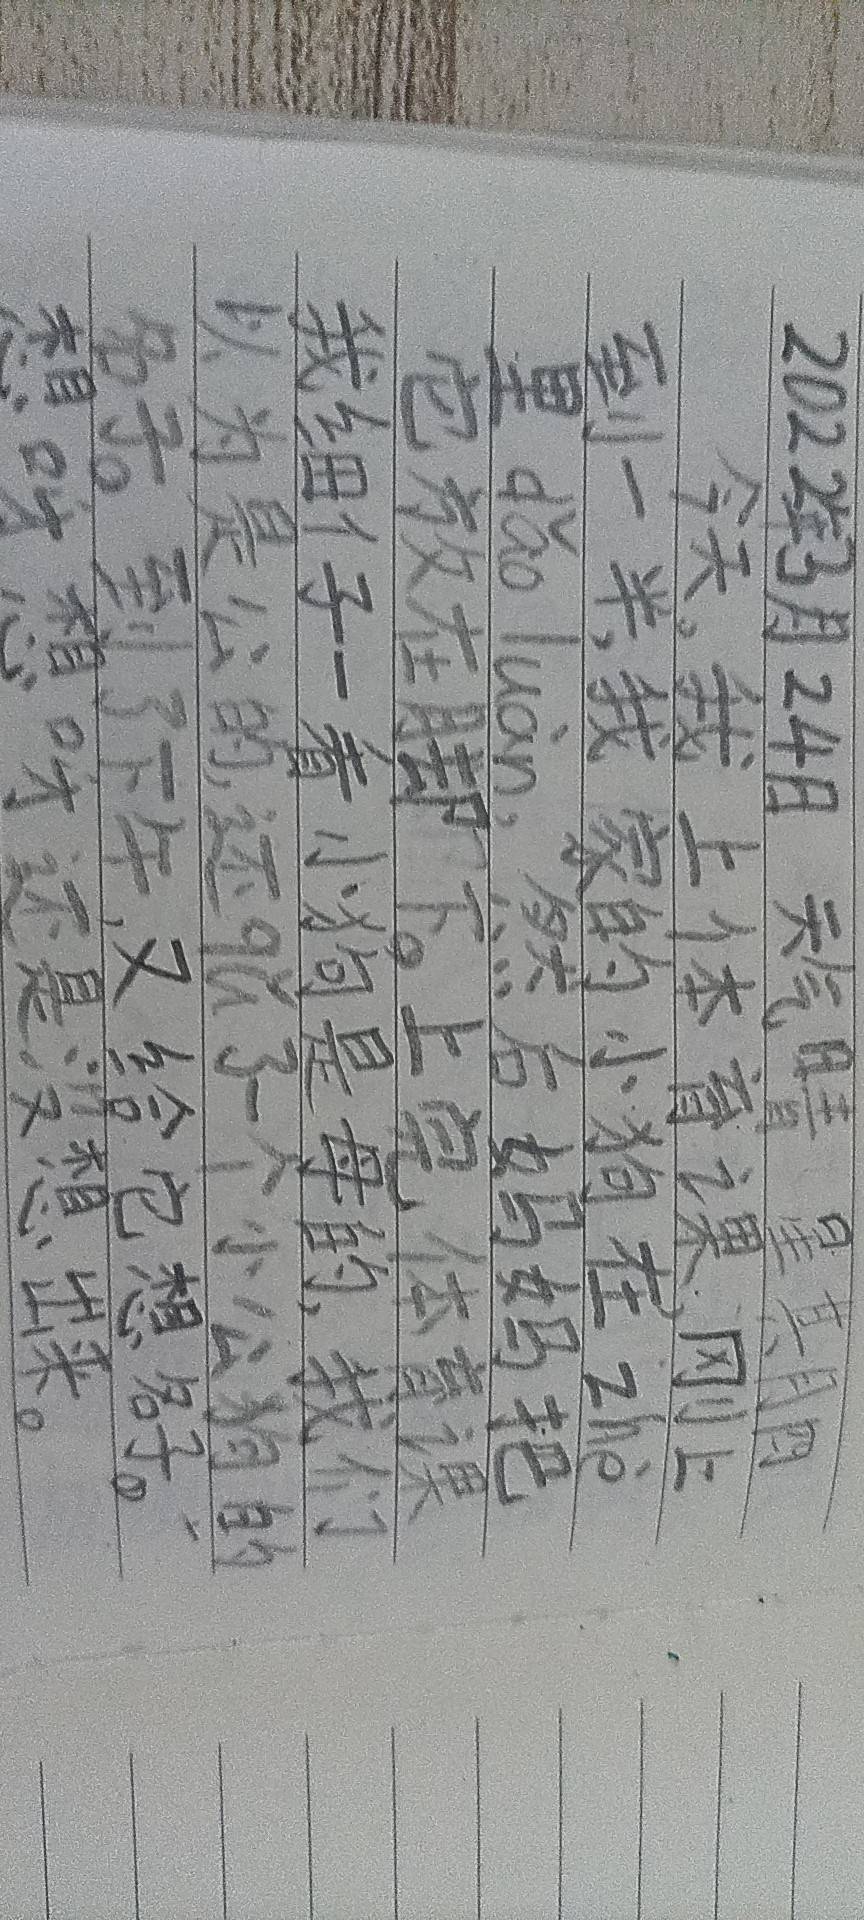 2022年3月24日 天气晴 星期四
今天。我上体育课,刚上
到一半,我家的小狗在zhè
里dǎo luàn,然后妈妈把
它放在脚下。上完体育课
我细子一看小狗是母的,我们
以为是公的,还取了一个小公狗的
名子。到了下午,又给它想名子。
想呀想呀还是没想出来。